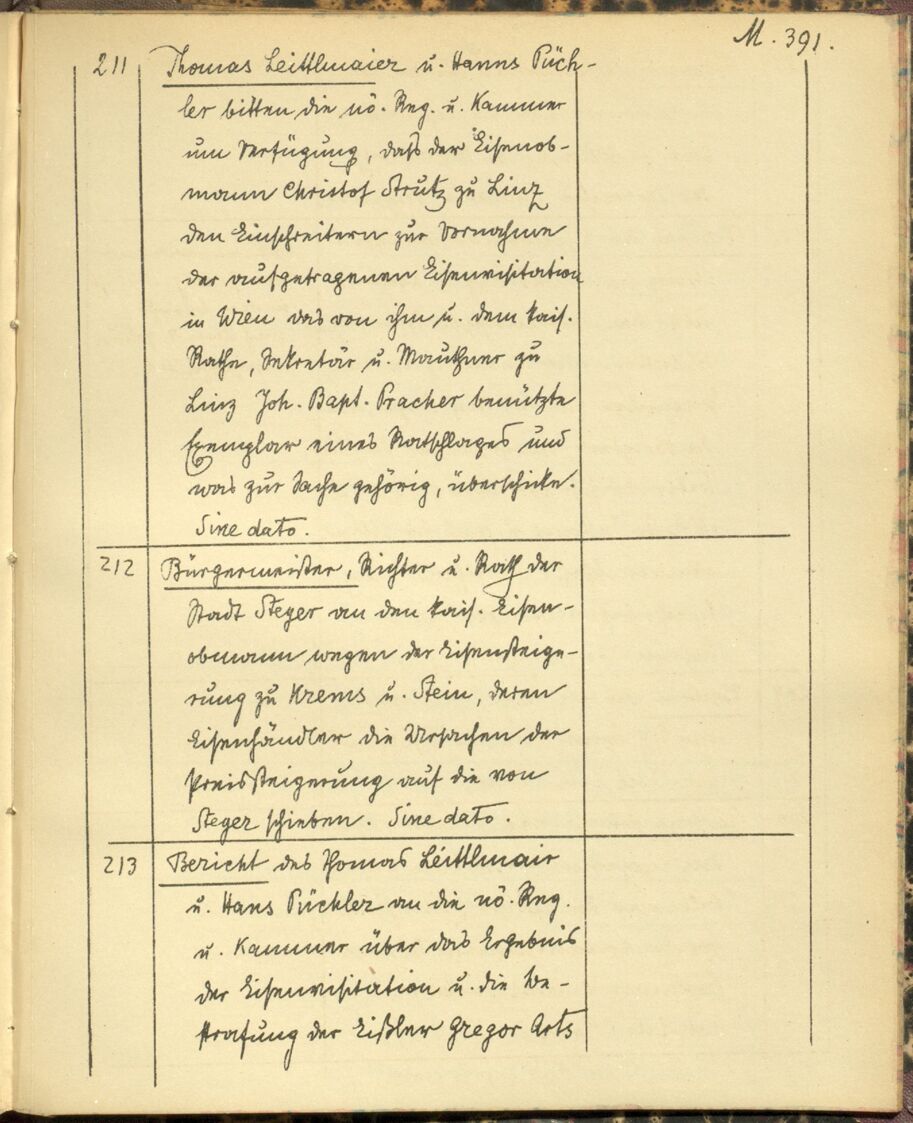 M. 391.
211 Thomas Leittlmaier u. Hanns Püch-
ler bitten die nö. Reg. u. Kammer
um Verfügung, daß der Eisenob-
mann Christof Strutz zu Linz
den Einschreitern zur Vornahme
der aufgetragenen Eisenvisitation
in Wien das von ihm u. dem kais.
Rathe, Sekretär u. Mauthner zu
Linz Joh. Bapt. Pracher benützte
Exemplar eines Ratschlages und
was zur Sache gehörig, überschicke.
Sine dato.
212 Bürgermeister, Richter u. Rath der
Stadt Steyer an den kais. Eisen-
obmann wegen der Eisensteige-
rung zu Krems u. Stein, deren
Eisenhändler die Ursachen der
Preissteigerung auf die von
Steyer schieben. Sine dato.
213 Bericht des Thomas Leittlmair
u. Hans Püchler an die nö. Reg.
u. Kammer über das Ergebnis
der Eisenvisitation u. die Be-
strafung der Eißler Gregor Arts